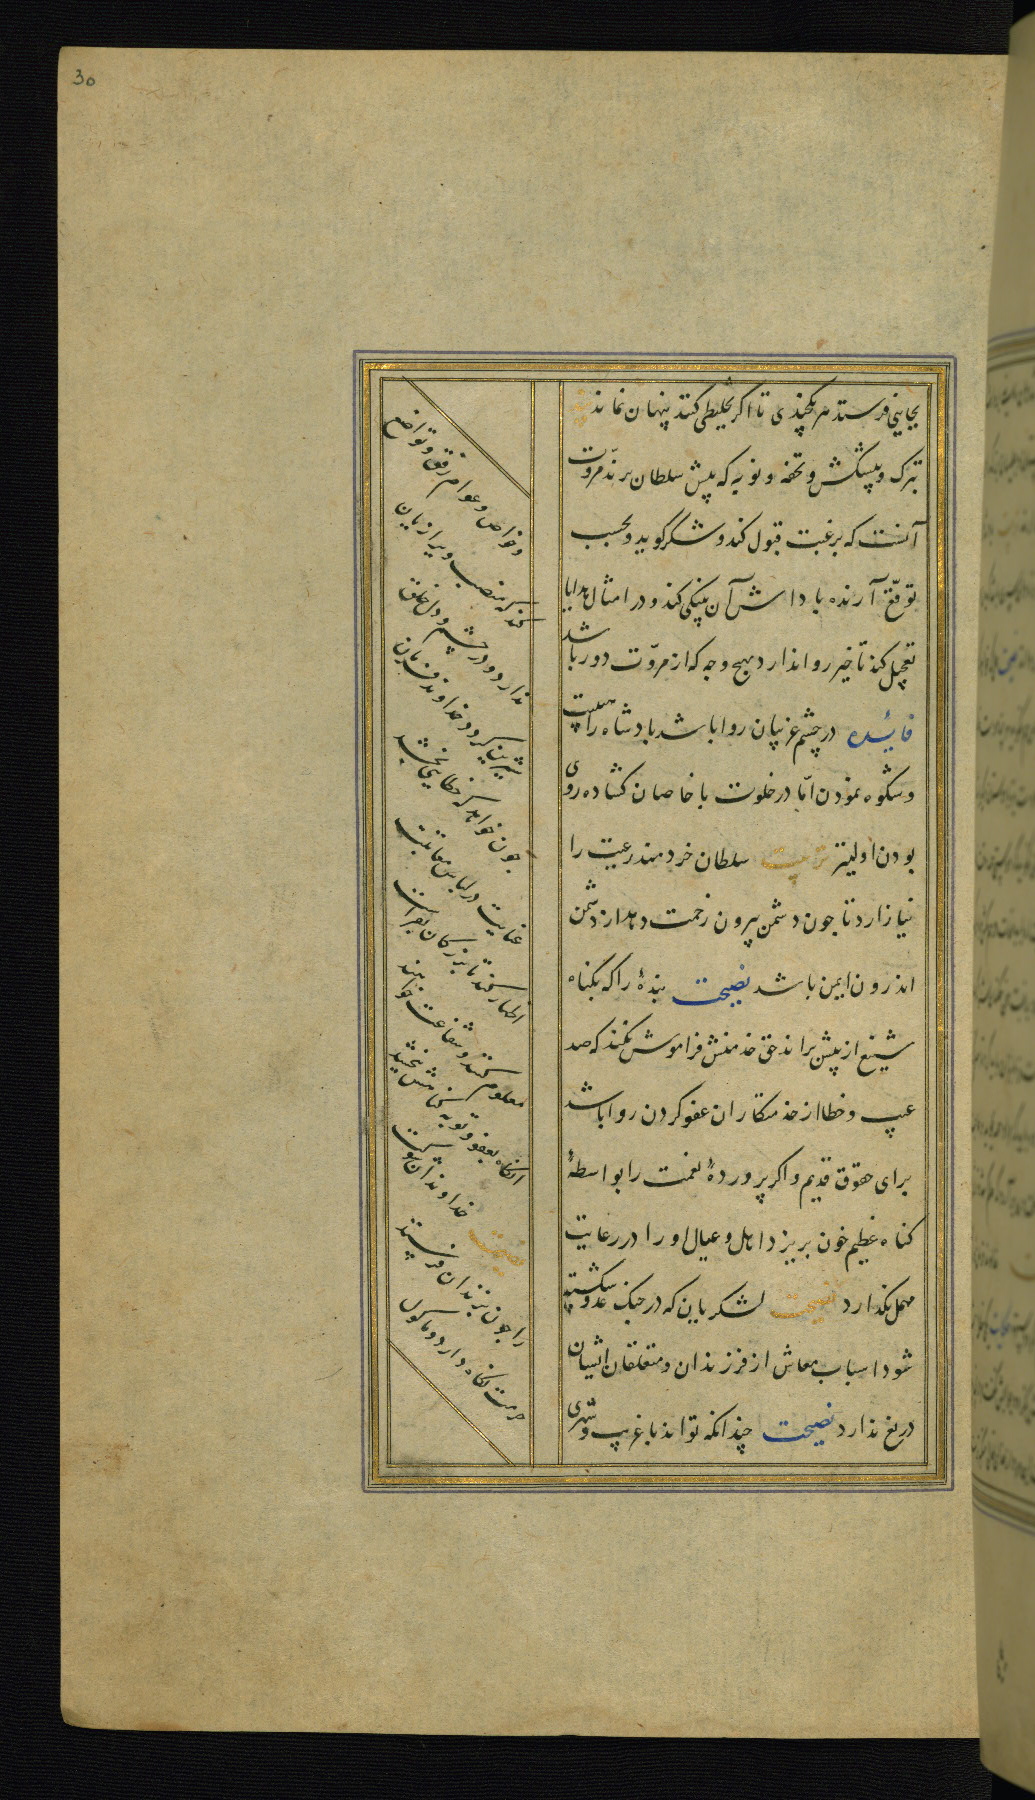 30
بجایی فرستد هر یکچندی تا اگر تخلیطی کنند پنهان نماند
تبرک و پیشکش و تحفه و نوبه که پیش سلطان برند مروّت
آنست که برغبت قبول کند و شکر گوید و بحسب
توقّع آرنده پاداش آن بنیکی کند و در امثال هدایا
تعجیل کند تاخیر روا ندارد بهیچ وجه که از مروّت دور باشد
فائده در چشم غریبان روا باشد پادشاه را هیبت
و شکوه نمودن امّا در خلوت با خاصان گشاده روی
بودن اولیتر تربیت سلطان خردمند رعیت را
نیازارد تا چون دشمن بیرون زحمت دهد از دشمن
اندرون ایمن باشد نصیحت بندهٔ را که بگناه
شنیع از پیش براند حق خدمتش فراموش نکند که صد
عیب و خطا از خدمتکاران عفو کردن روا باشد
برای حقوق قدیم و اکر پروردهٔ نعمت را بواسطهٔ
کناه عظیم خون بریزد اهل و عیال او را در رعایت
مهمل نکذارد نصیحت لشکریان که در جنک عدو کشته
شود اسباب معاش از فرزندان و متعلقان ایشان
دریغ ندارد نصیحت چندانکه تواند با غریب و شهری
و خواص و عوام رفق و تواضع
کند که منصب ویرا زیان
ندارد و در چشم و دل خلق
شیرین کردد خداوند فرمان
چون خواهد که خطایی بخشد
عنایت در لباس معاتبت
اظهار کند تا بزرکان بفراست
معلوم کنند و شفاعت خواهند
آنکاه بعفو و توبه کناهش بخشد
نصیحت خداوندان شوکت
را چون بزندان فرستد
حرمت نکاه دارد و ماکول